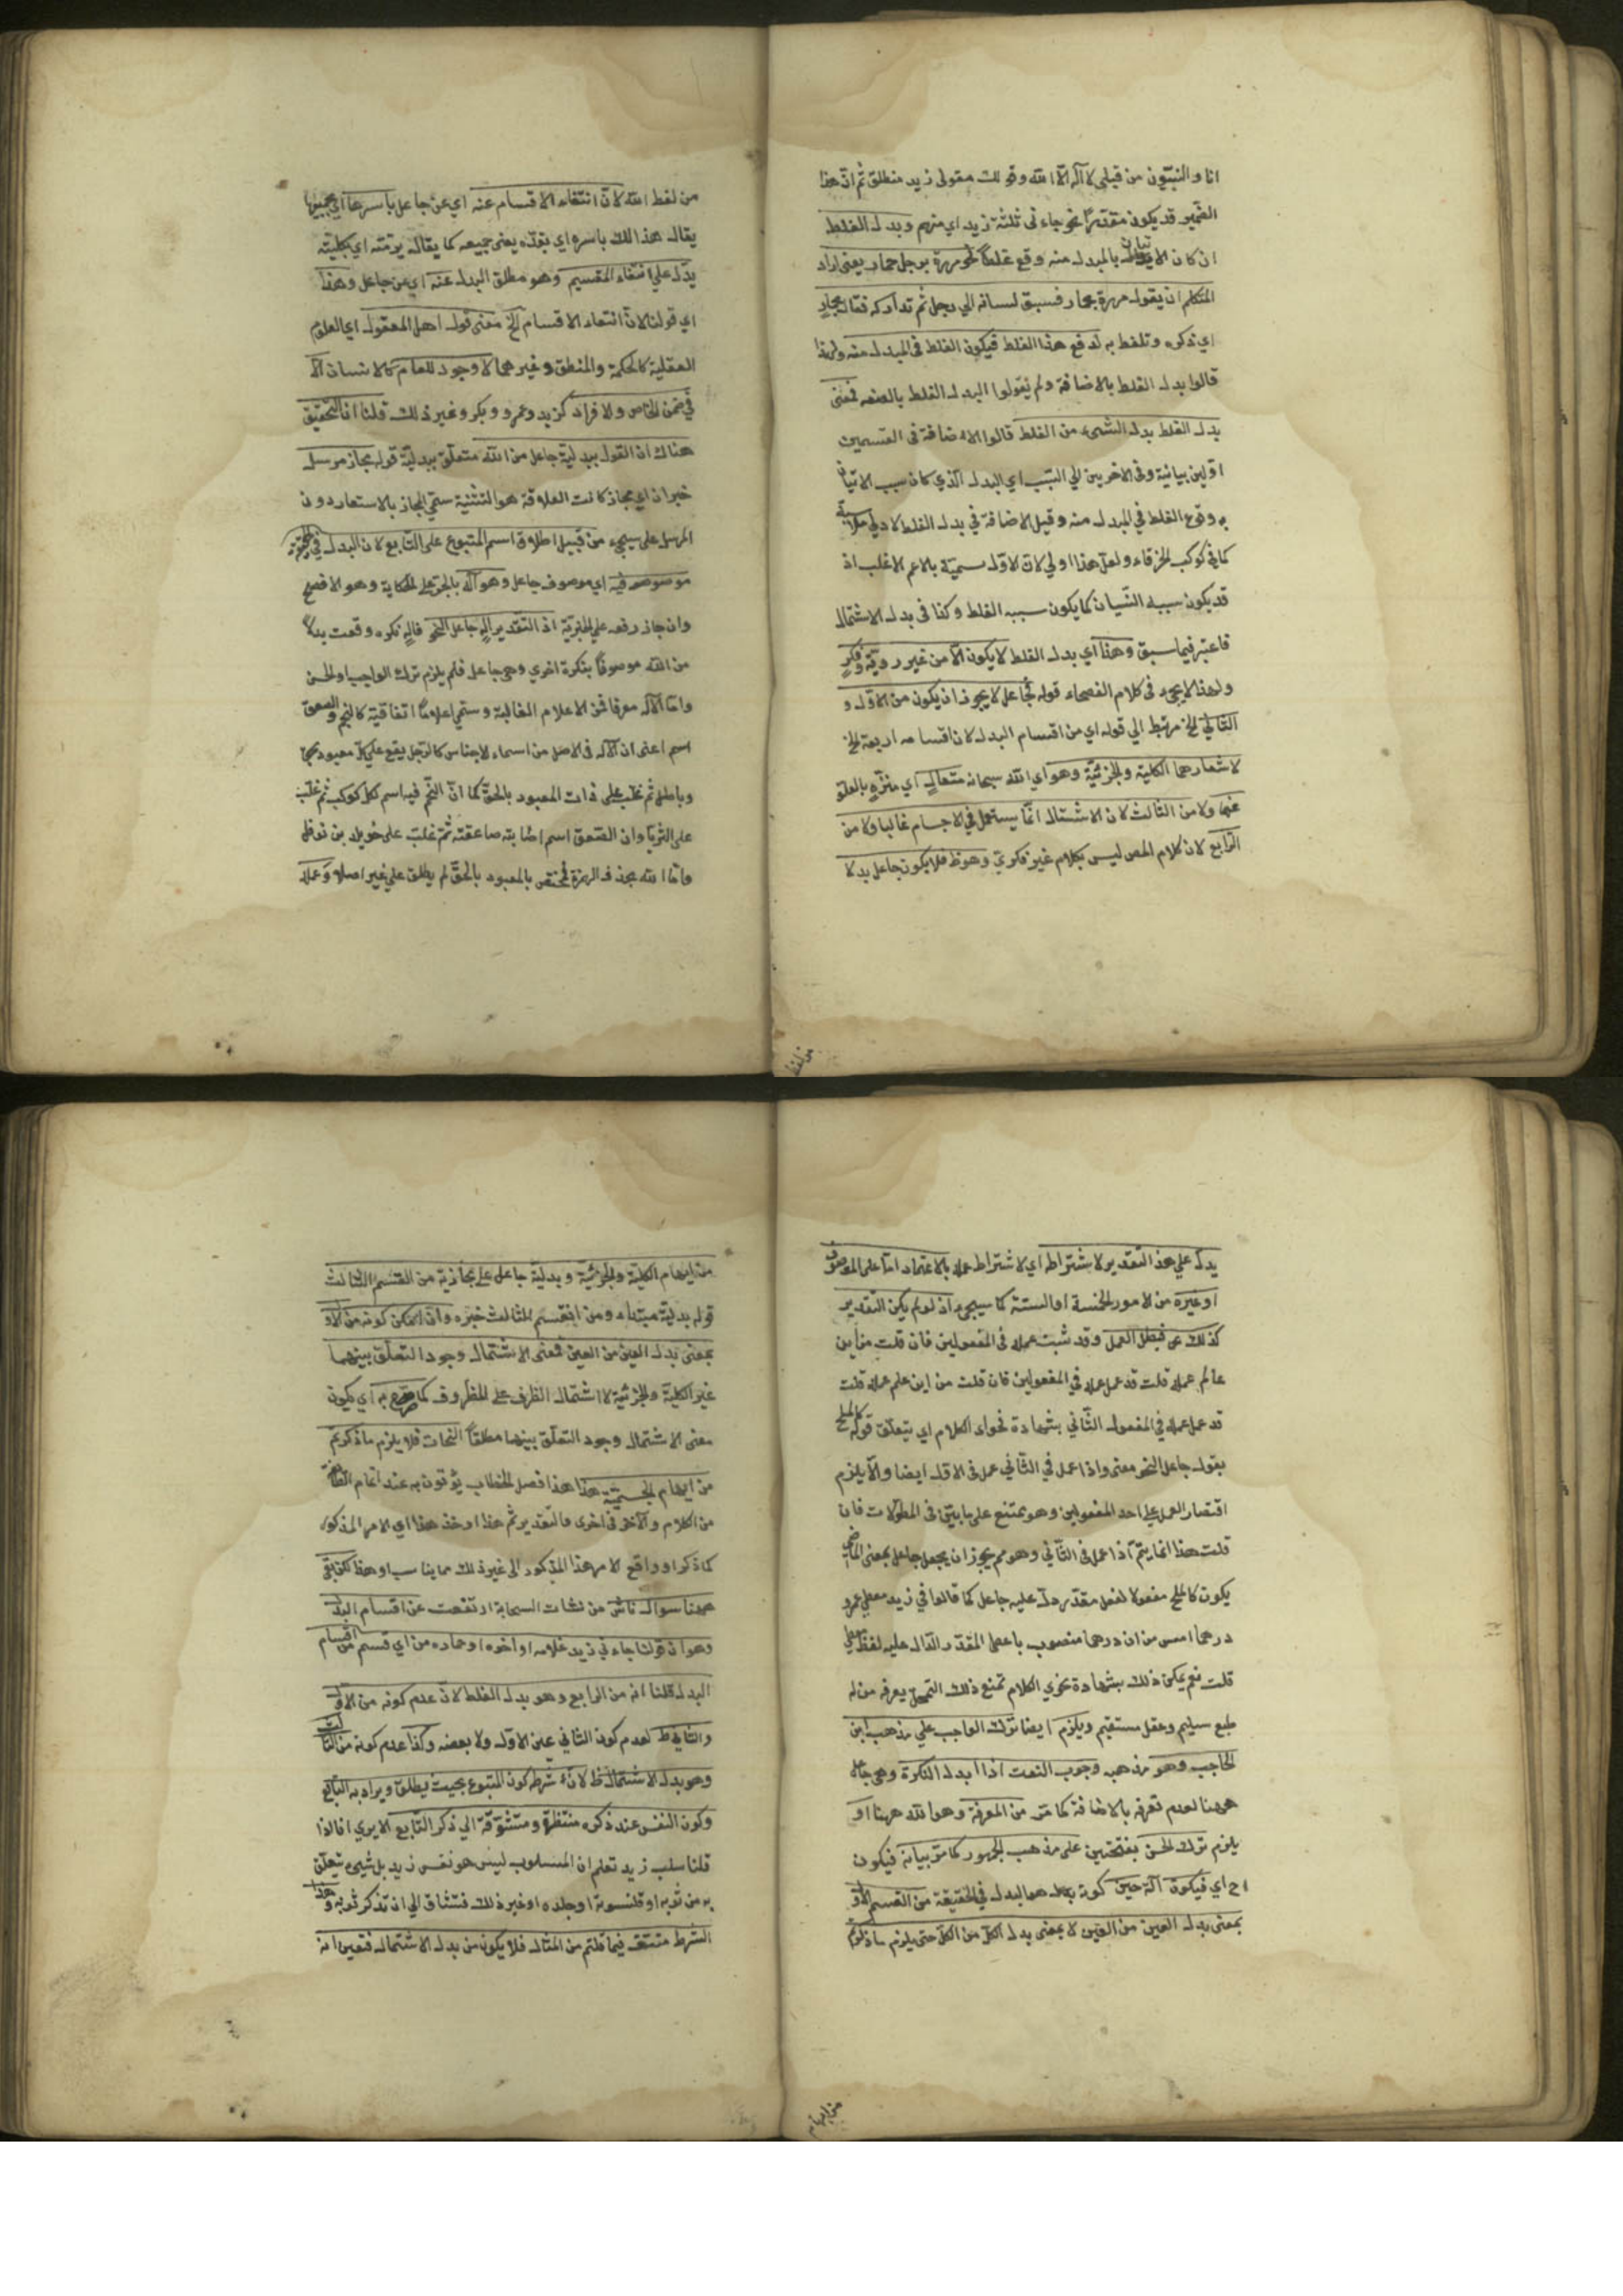 انا والنبيّون من قبلي لا آله الّا الله وقولك مقولى زيد منطلق ثم انّ هذا
الضمير قد يكون مقدّرًا نحو جاءنى ثلثة زيد اى منهم وبدل الغلط
ان كان الاتيان بالمبدل منه وقع غلطًا نحو مررت برجل حمار يعنى اراد
المتكلم ان يقول مررت بحمار فسبق لسانه الي رجل ثم تداركه فقال بحمار
اي ذكره وتلفظ به لدفع هذا الغلط فيكون الغلط فى المبدل منه ولهذا
قالوا بدل الغلط بالاضافة ولم يقولوا البدل الغلط بالصفه فمعنى
بدل الغلط بدل الشيء من الغلط قالوا الاضافة فى القسمين
اوّلين بيانية وفى الاخريين الي السّبب اي البدل الّذي كان سبب الاتيان
به وقوع الغلط في المبدل منه وقيل الاضافة في بدل الغلط لادني ملابسة
كما فى كوكب الخرقاء ولعل هذا اولي لان الاوّل سميّة بالاعم الاغلب اذ
قد يكون سببه النّسيان كما يكون سببه الغلط وكذا فى بدل الاشتمال
فاعتبر فيما سبق وهذا اي بدل الغلط لا يكون الّا من غير رويّة وفكر
ولهذا لا يجيء فى كلام الفصحاء قوله فجاعل لا يجوز ان يكون من الاوّل و
الثاني الخ مرتبط الي قوله اي من اقسام البدل لان اقسامه اربعة الخ
لاشعارهما الكلية والجزئيّة وهو اي الله سبحانه متعالٍ اي منزّه بالعلو
عنها ولا من الثالث لان الاشتمال انّما يستعمل في الاجسام غالبا ولا من
الرّابع لان كلام المص ليس بكلام غير فكريّ وهو ظ فلا يكون جاعل بدلا
من لفظ
من لفظ الله لانّ انتفاء الاقسام عنه اي عن جاعل باسرها اي بجميعها
يقال هذا لك باسره اي بقدّه يعنى جميعه كما يقال برمّته اي بكليّته
يدّل علي انتفاء المقسيم وهو مطلق البدل عنه اي عن جاعل وهذا
اي قولنا لانّ انتفاء الاقسام الخ معنى قول اهل المعقول اي العلوم
العقلية كالحكمة والمنطق وغيرهما لا وجود للعام كالانسان الّا
في ضمن الخاص والافراد كزيد وعمرو وبكر وغير ذلك قلنا انّ التحقيق
هناك ان القول ببدليّة جاعل من الله متعلّق ببدليّة قوله مجاز مرسل
خبر ان اي مجاز كانت العلاقة هو التثنية سمّي المجاز بالاستعار دون
المرسل على سيجيء من قبيل اطلاق اسم المتبوع على التابع لان البدل في الحقيقة
موصوفه اي موصوف جاعل وهو آله بالجرّ على الحكاية وهو الافصح
وان جاز رفعه علي الخبريّة اذ التقدير الهٍ جاعل النحو فالهٍ نكره وقعت بدلاً
من الله موصوفًا بنكرة اخري وهى جاعل فلم يلزم ترك الواجب اولحسن
وامّا الآله معرفا فمن الاعلام الغالبة وسمّي اعلامًا اتفاقية كالنجم والصعق
اسم اعنى ان الآله فى الاصل من اسماء الاجناس كالرّجل يقع علي كل معبود بحق
وباطل ثم غلب على ذات المعبود بالحقّ كما انّ النّجم فيه اسم لكل كوكب ثم غلب
على الثريّا وان الصّعق اسم اصابته صاعقة ثم غلب على خويلد بن نوفل
وامّا الله بحذف الهمزة فمختص بالمعبود بالحقّ لم يطلق علي غير اصلا وعمله
يدلّ علي هذ التقدير لاشتراطه اي لاشتراط عمله بالاعتماد امّا على الموصوف
او غيره من الامور الخمسة او الستة كما سيجيء اذ لو لم يكن التقدير
كذلك بطل العمل وقد ثبت عمله فى المفعولين فان قلت من اين
عالم عمله قلت قد عمل عمله في المفعولين فان قلت من اين علم عمله قلت
قد عمل عمله في المفعول الثّاني بشهادة فحواء الكلام اي يتعلّق قوله كالملح
بقوله جاعل النحو معنى واذا عمل في الثّاني عمل فى الاوّل ايضا والّا يلزم
اقتصار العمل علي احد المفعولين وهو ممتنع على ما بيّن فى المطوّلات فان
قلت هذا انما يتمّ اذا عمل فى الثّاني وهو مم يجوز ان يجعل جاعل بمعنى الماضي
يكون كالملح مفعولا لفعل مقدّر دلّ عليه جاعل كما قالوا في زيد معطي عمرو
درهما امس من ان درهما منصوب باعطى المقدّر الدّال عليه لفظ معطي
قلت نعم يمكن ذلك بشهادة فحوي الكلام تمنع ذلك التمحّل يعرفه من له
طبع سليم وعقل مستقيم ويلزم ايضا ترك الواجب علي مذهب ابن
الحاجب وهو مذهبه وجوب النعت اذا ابدل النكرة وهى جاعل
ههنا لعدم تعرفه بالاضافة كما مرّ من المعرفة وهو الله ههنا او
يلزم ترك الحسن بفتحتين على مذهب الجمهور كما مرّ بيانه فيكون
اح اي فيكون آله حين كونه هو البدل في الحقيقة من القسم الاوّل
بمعنى بدل العين من العين لا بمعنى بدل الكلّ من الكلّ حتى يلزم ما ذكرتم
من ايهام
من ايهام الكلية والجزئيّة وبدليّة جاعل على مجازية من القسم الثالث
قوله بدليّة مبتداء ومن القسم الثالث خبره وان امكن كونه من الاوّل
بمعنى بدل العين من العين فمعنى الاشتمال وجود التعلّق بينهما
غير الكلية والجزئية لا اشتمال الظرف على المظروف كما صرّح به اي يكون
معنى الاشتمال وجود التعلّق بينهما مطلقًا النحات فلا يلزم ما ذكرتم
من ايهام الجسميّة هذا هذا فصل الخطاب يؤتون به عند اتمام الطائفة
من الكلام والاخذ فى اخرى فالتقدير ثم هذا او خذ هذا اي الامر المذكور
كما ذكر او واقع الامر هذا المذكور الى غير ذلك مما يناسب او هذا لكن بقي
ههنا سوال ناش من نشات السحابة ارتفعت عن اقسام البدل
وهو ان قولنا جاءني زيد غلامه او اخوه او حماره من اي قسم من اقسام
البدل قلنا انه من الرابع وهو بدل الغلط لانّ عدم كونه من الاوّل
والثاني ظ لعدم كون الثاني عين الاوّل ولا بعضه وكذا عدم كونه من الثالث
وهو بدل الاشتمال ظ لانّه شرطه كون المتبوع بحيث يطلق ويراد به التابع
وكون النفس عند ذكره منتظرة ومتشوّقة الي ذكر التّابع الا يري انا اذا
قلنا سلب زيد تعلم ان المسلوب ليس هو نفس زيد بل شيء تعلّق
به من ثوبه او قلنسوته او جلده او غير ذلك فتشتاق الي ان تذكر ثوبه وهذا
الشرط منتف فيما قلتم من المثال فلا يكون من بدل الاشتمال فتعين انه